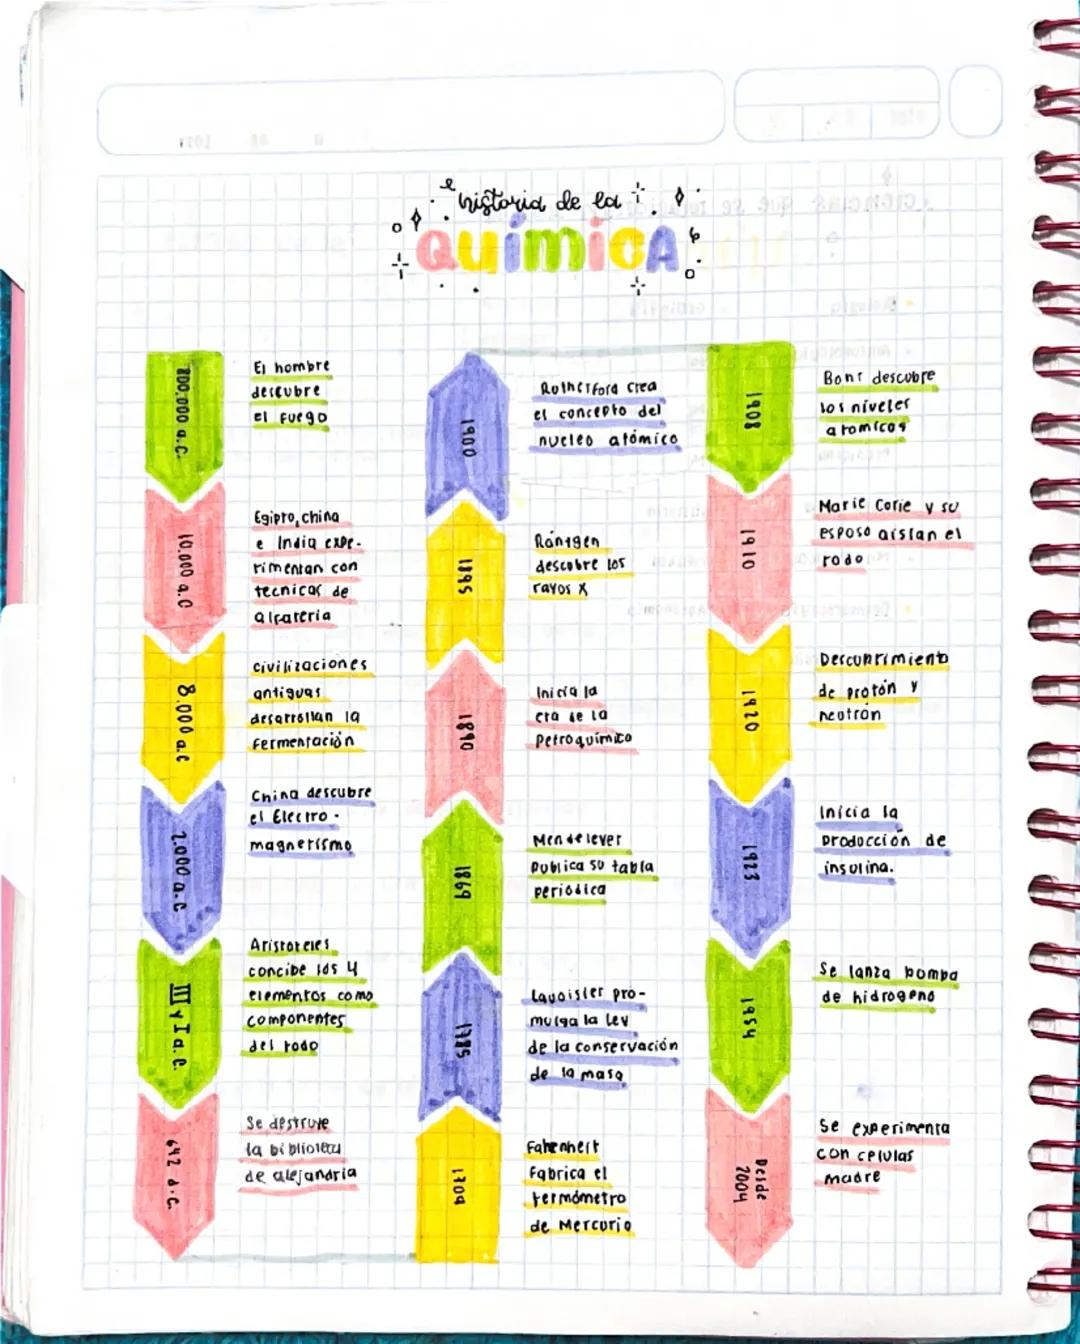 historia de la
QUÍMICA
800.000 a.C.
El hombre
descubre
el fuego
10.000 a.C
Egipto, china
e India expe-
rimentan con
tecnicas de
alfareria
8.000 a.c
civilizaciones
antiguas
desarrollan la
fermentación
2.000 a.C
China descubre
el Electro-
magnetismo
III y I a.C.
Aristoteles
concibe los 4
elementos como
componentes
del todo
642 d.C.
Se destruye
la biblioteca
de alejandria
1704
Fahrenheit
Fabrica el
termómetro
de Mercurio
1785
Lavoisier pro-
mulga la Ley
de la conservación
de la masa
1869
Mendelever
publica su tabla
periódica
1890
Inicia la
era de la
Petroquímico
1895
Röntgen
descubre los
rayos x
1900
Rutherford crea
el concepto del
nucleo atómico
1908
Bohr descubre
los niveles
atomicos
1910
Marie Corie y su
esposo aislan el
rodo
1920
Descubrimiento
de protón y
neutrón
1923
Inicia la
producción de
insulina.
1954
Se lanza bomba
de hidrogeno
Desde
2004
Se experimenta
con celulas
madre